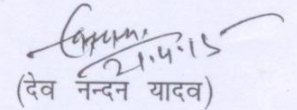 21.4.15
(देव नन्दन यादव)